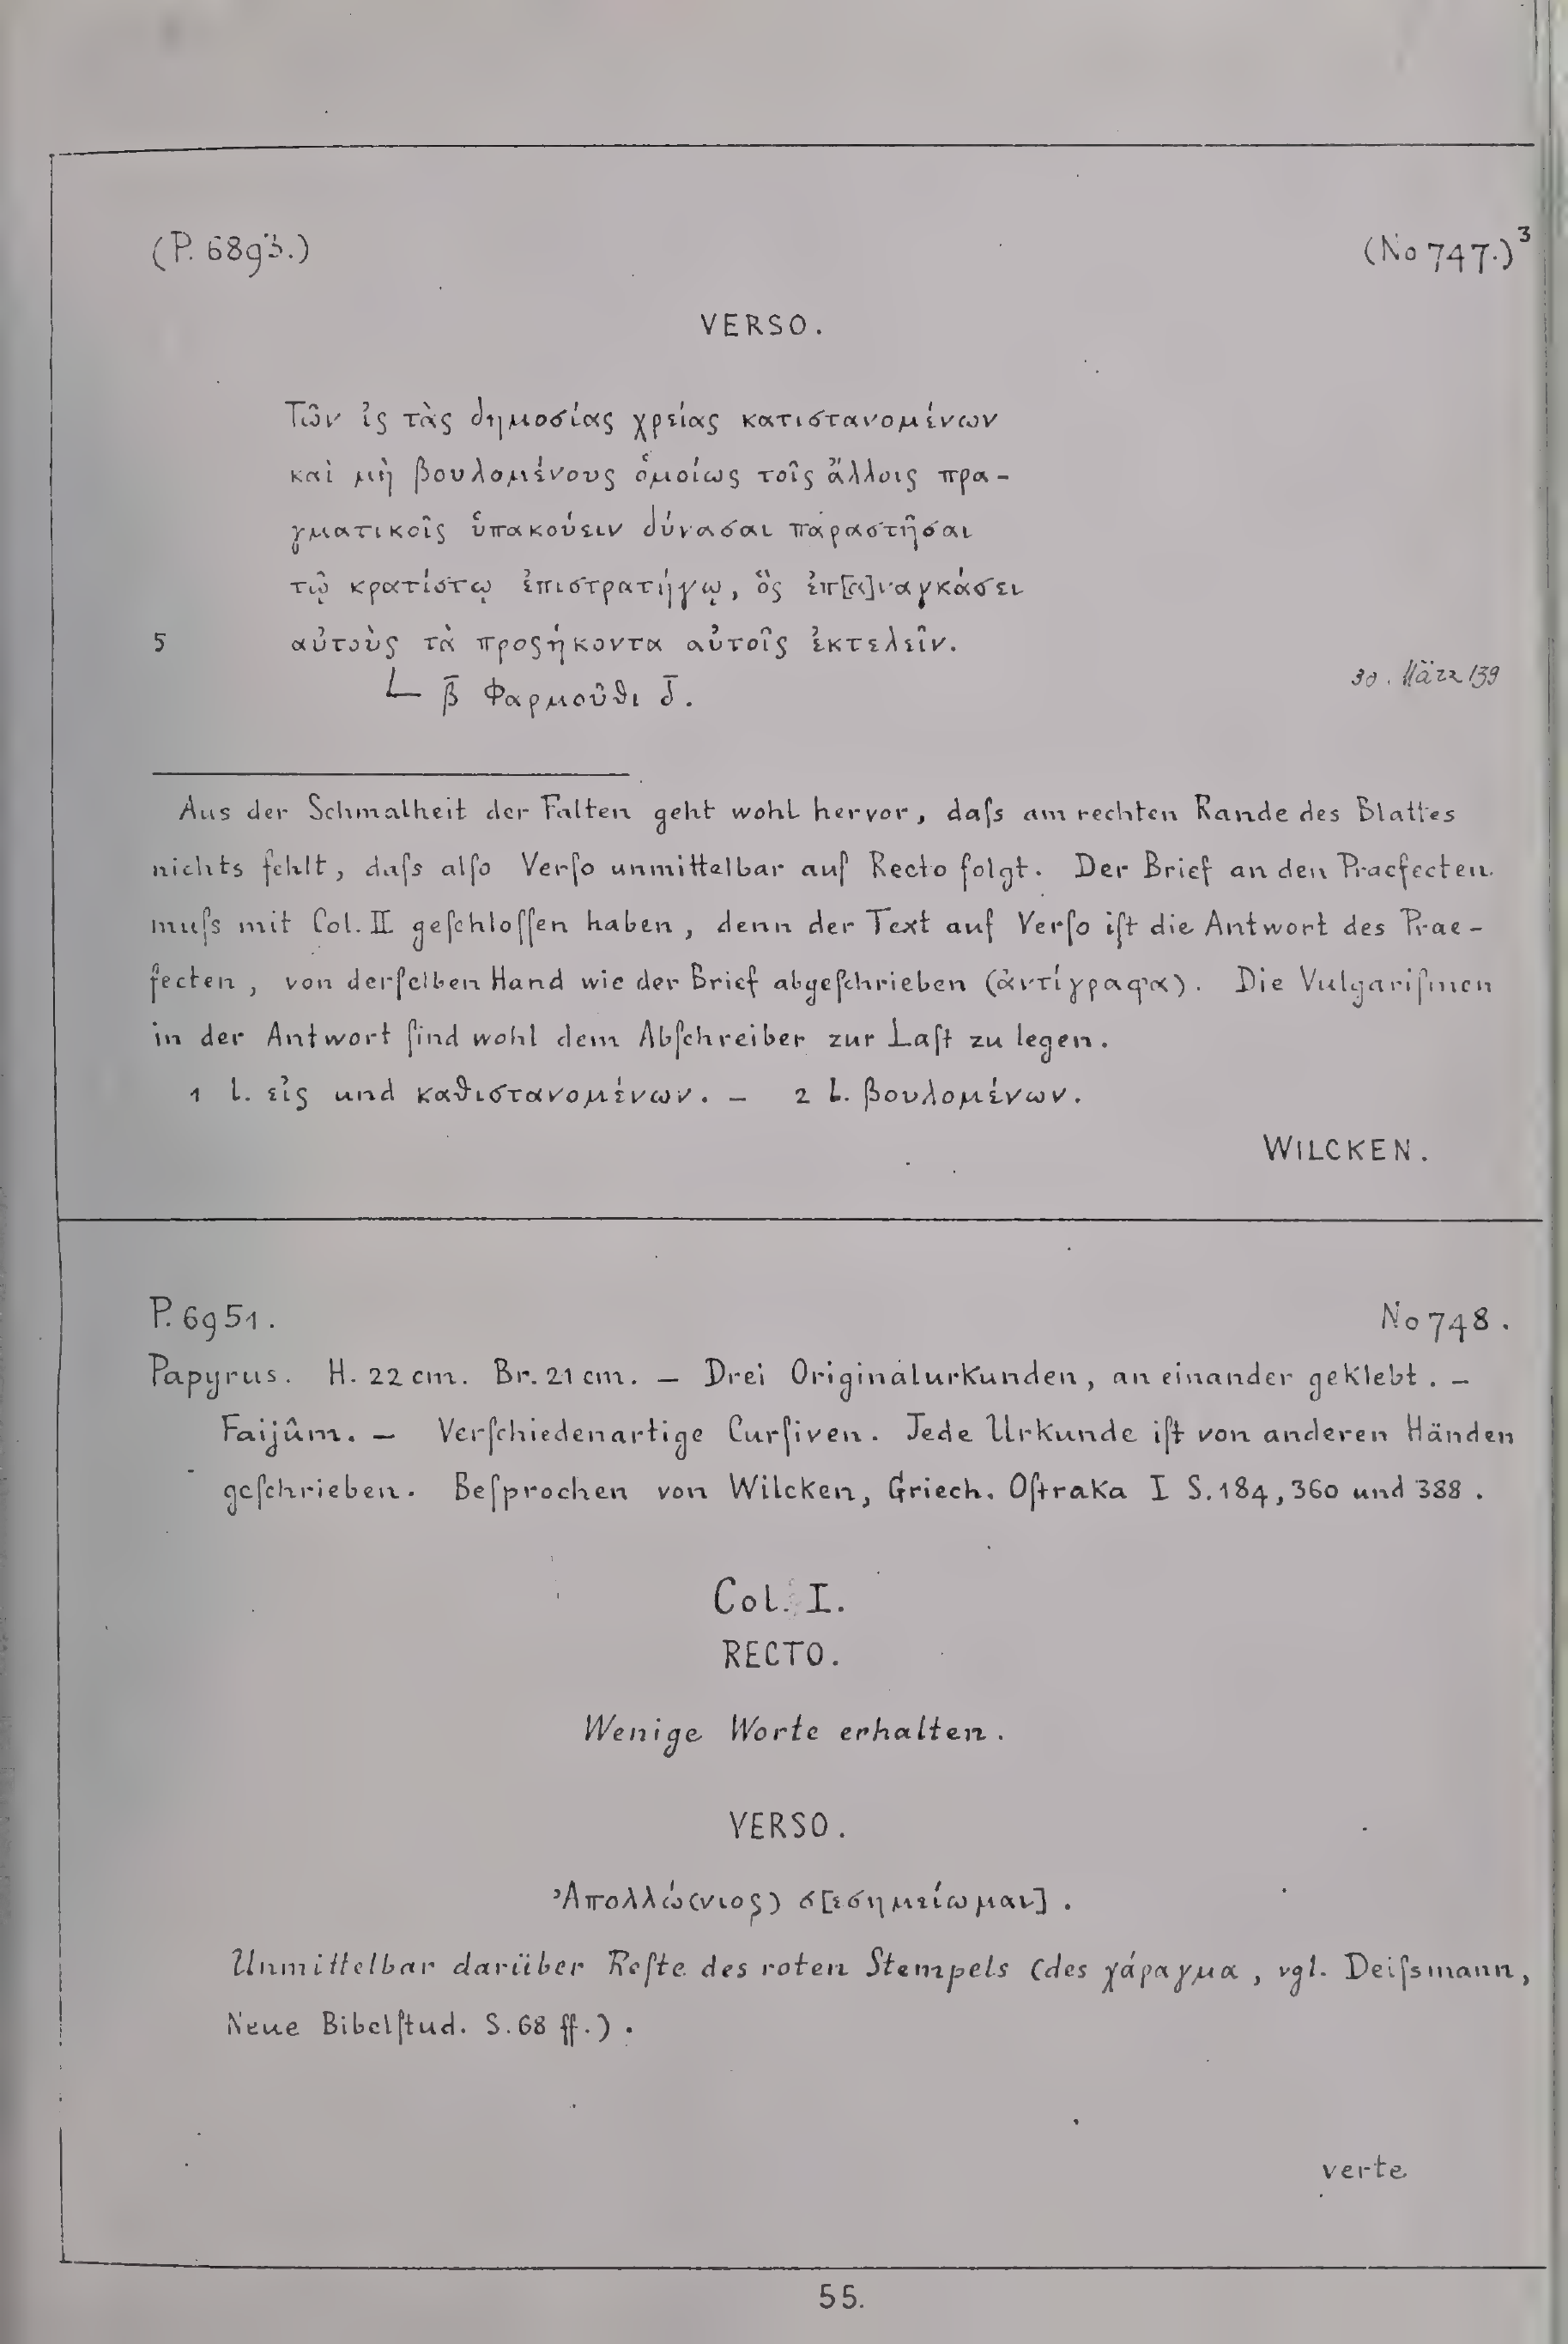 (P. 6893.) (No 747.)³
VERSO.
Τῶν ἰς τὰς δημοσίας χρείας κατιστανομένων
καὶ μὴ βουλομένους ὁμοίως τοῖς ἄλλοις πρα-
γματικοῖς ὑπακούειν δύνασαι παραστῆσαι
τῷ κρατίστῳ ἐπιστρατήγῳ, ὃς ἐπ[α]ναγκάσει
5 αὐτοὺς τὰ προςήκοντα αὐτοῖς ἐκτελεῖν.
𐅹 β̅ Φαρμοῦθι δ̅. 30. März 139
Aus der Schmalheit der Falten geht wohl hervor, daſs am rechten Rande des Blattes
nichts fehlt, daſs alſo Verſo unmittelbar auf Recto folgt. Der Brief an den Praefecten
muſs mit Col. II geſchloſſen haben, denn der Text auf Verſo iſt die Antwort des Prae-
fecten, von derſelben Hand wie der Brief abgeſchrieben (ἀντίγραφα). Die Vulgariſmen
in der Antwort ſind wohl dem Abſchreiber zur Laſt zu legen.
1 l. εἰς und καθιστανομένων. – 2 l. βουλομένων.
WILCKEN.
P. 6951. No 748.
Papyrus. H. 22 cm. Br. 21 cm. – Drei Originalurkunden, an einander geklebt. –
Faijûm. – Verſchiedenartige Curſiven. Jede Urkunde iſt von anderen Händen
geſchrieben. Beſprochen von Wilcken, Griech. Oſtraka I S. 184, 360 und 388.
Col. I.
RECTO.
Wenige Worte erhalten.
VERSO.
Ἀπολλώ(νιος) σ[εσημείωμαι].
Unmittelbar darüber Reſte des roten Stempels (des χάραγμα, vgl. Deiſsmann,
Neue Bibelſtud. S. 68 ff.).
verte
55.